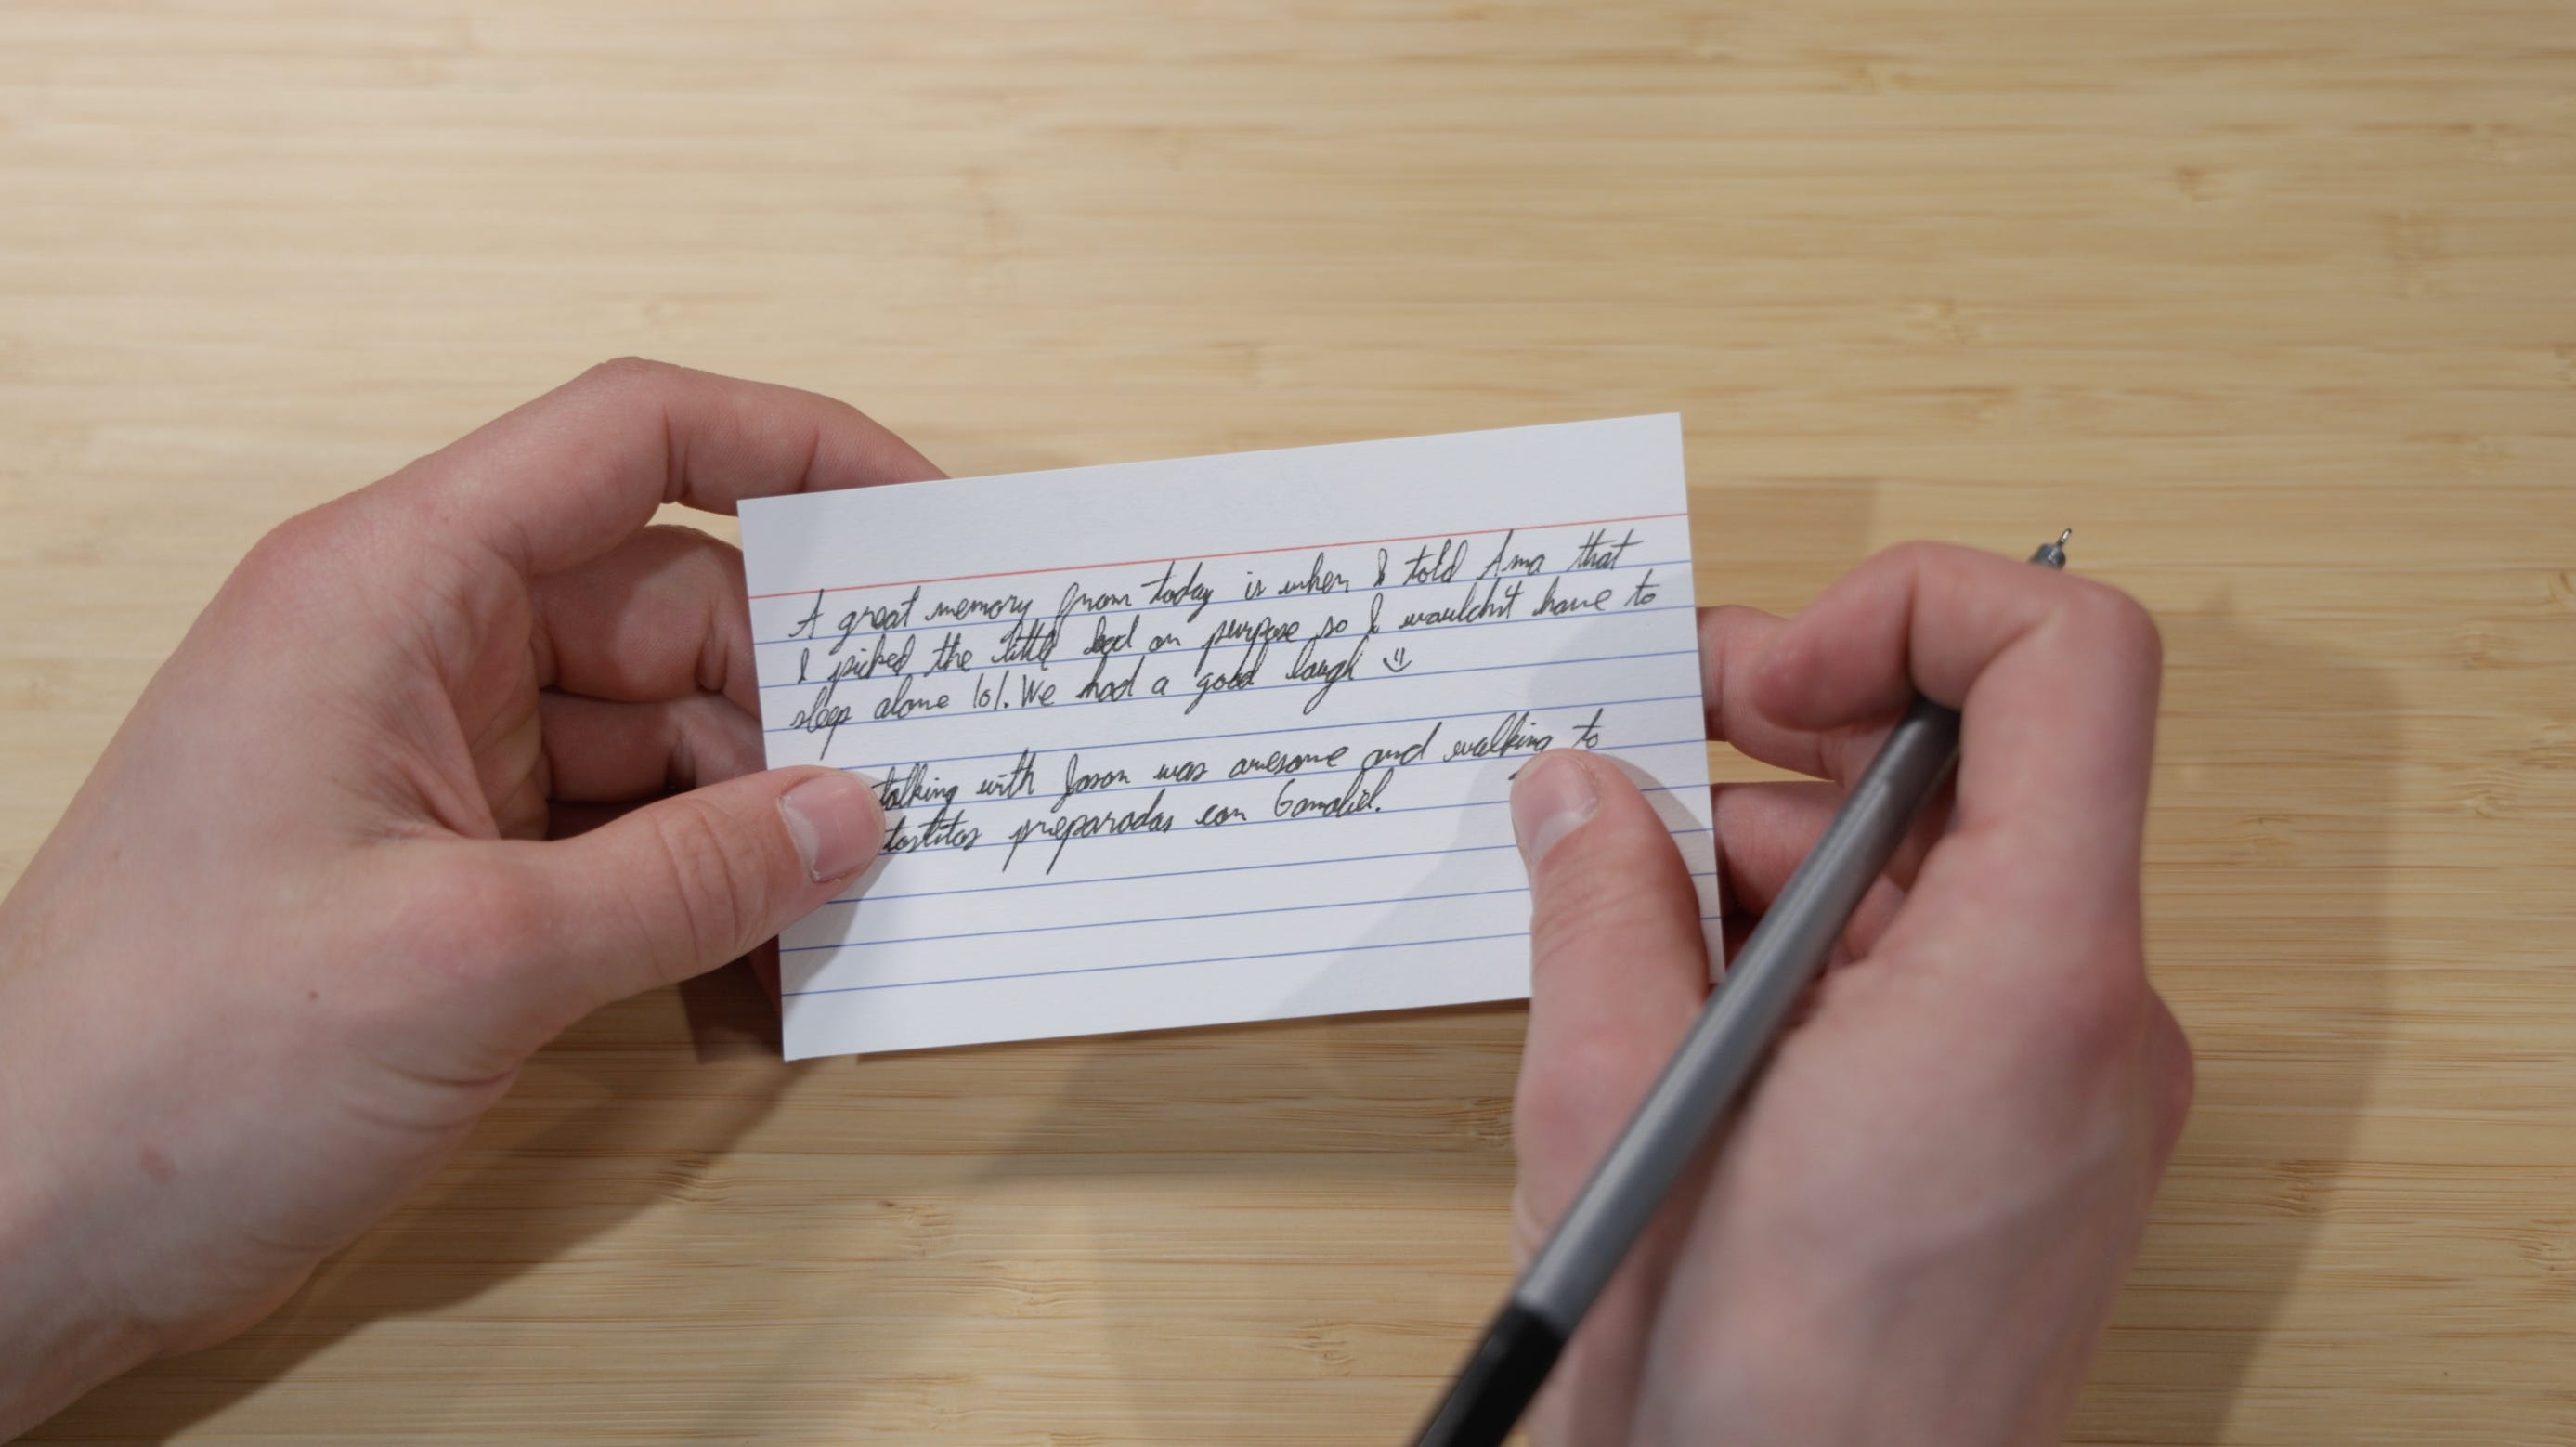 A great memory from today is when I told Ama that
I picked the little bed on purpose so I wouldn't have to
sleep alone lol. We had a good laugh
talking with Jason was awesome and walking to
tostitos preparadas con Gamaliel.